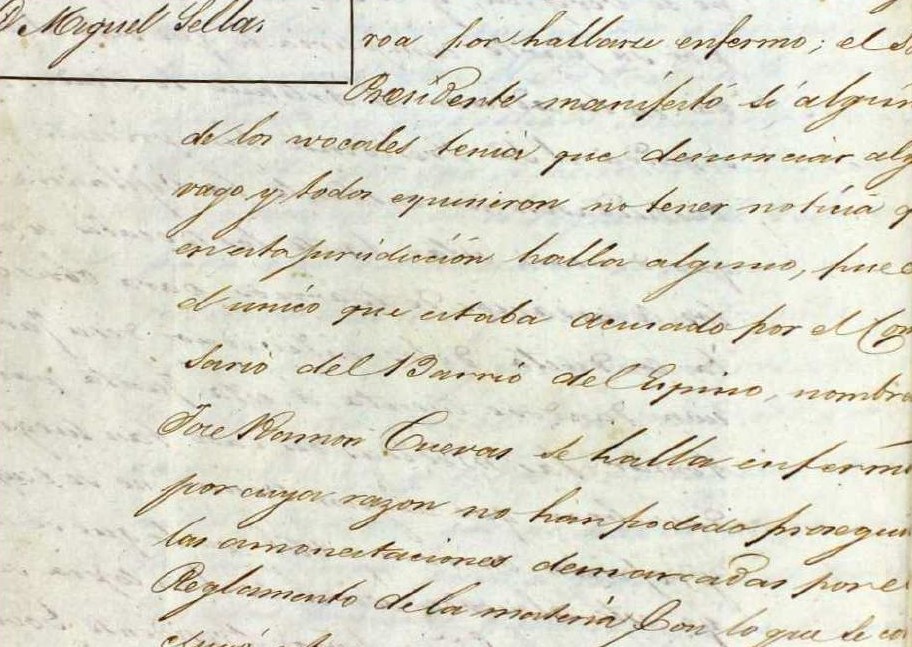 D Miguel Sellas
roa por hallarse enfermo; el
Presidente manifestó si algun
de los vocales tenia que denunciar alg
vago y todos espusieron no tener noticia q
en esta jurisdiccion halla alguno, pue
el unico que estaba acusado por el Co
sario del Barrio del Espino, nombra
Jose Ramon Cuevas se halla enferm
por cuya razon no han podido prosegui
las amonestaciones demarcadas por e
Reglamento de la materia Con lo que se co